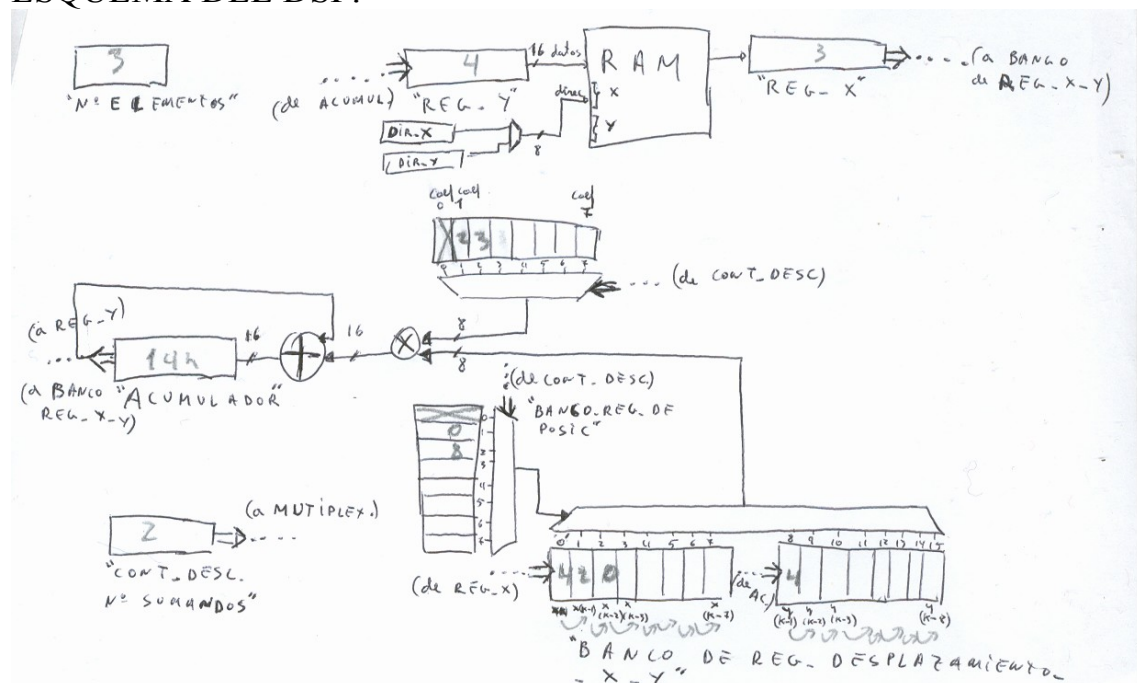 ESQUEMA DEL DSP:
3
"Nº ELEMENTOS"
(de ACUMUL)
4
"REG_Y"
16 datos
direc
RAM
X
Y
DIR_X
DIR_Y
8
3
"REG_X"
(a BANCO
de REG_X-Y)
coef coef
0 1
coef
7
2 3
0 1 2 3 4 5 6 7
(de CONT_DESC)
(a REG_Y)
14h
16
+
16
X
8
8
(a BANCO
REG_X-Y)
"ACUMULADOR"
(de CONT_DESC)
"BANCO_REG_DE
POSIC"
0
8
0
1
2
3
4
5
6
7
2
(a MUTIPLEX.)
"CONT_DESC.
Nº SUMANDOS"
0 1 2 3 4 5 6 7
8 9 10 11 12 13 14 15
(de REG_X)
4 2 0
(de AC)
4
X(K-1) X(K-2) X(K-3) X(K-7)
Y(K-1) Y(K-2) Y(K-3) Y(K-8)
"BANCO DE REG_DESPLAZAMIENTO_
_X_Y"